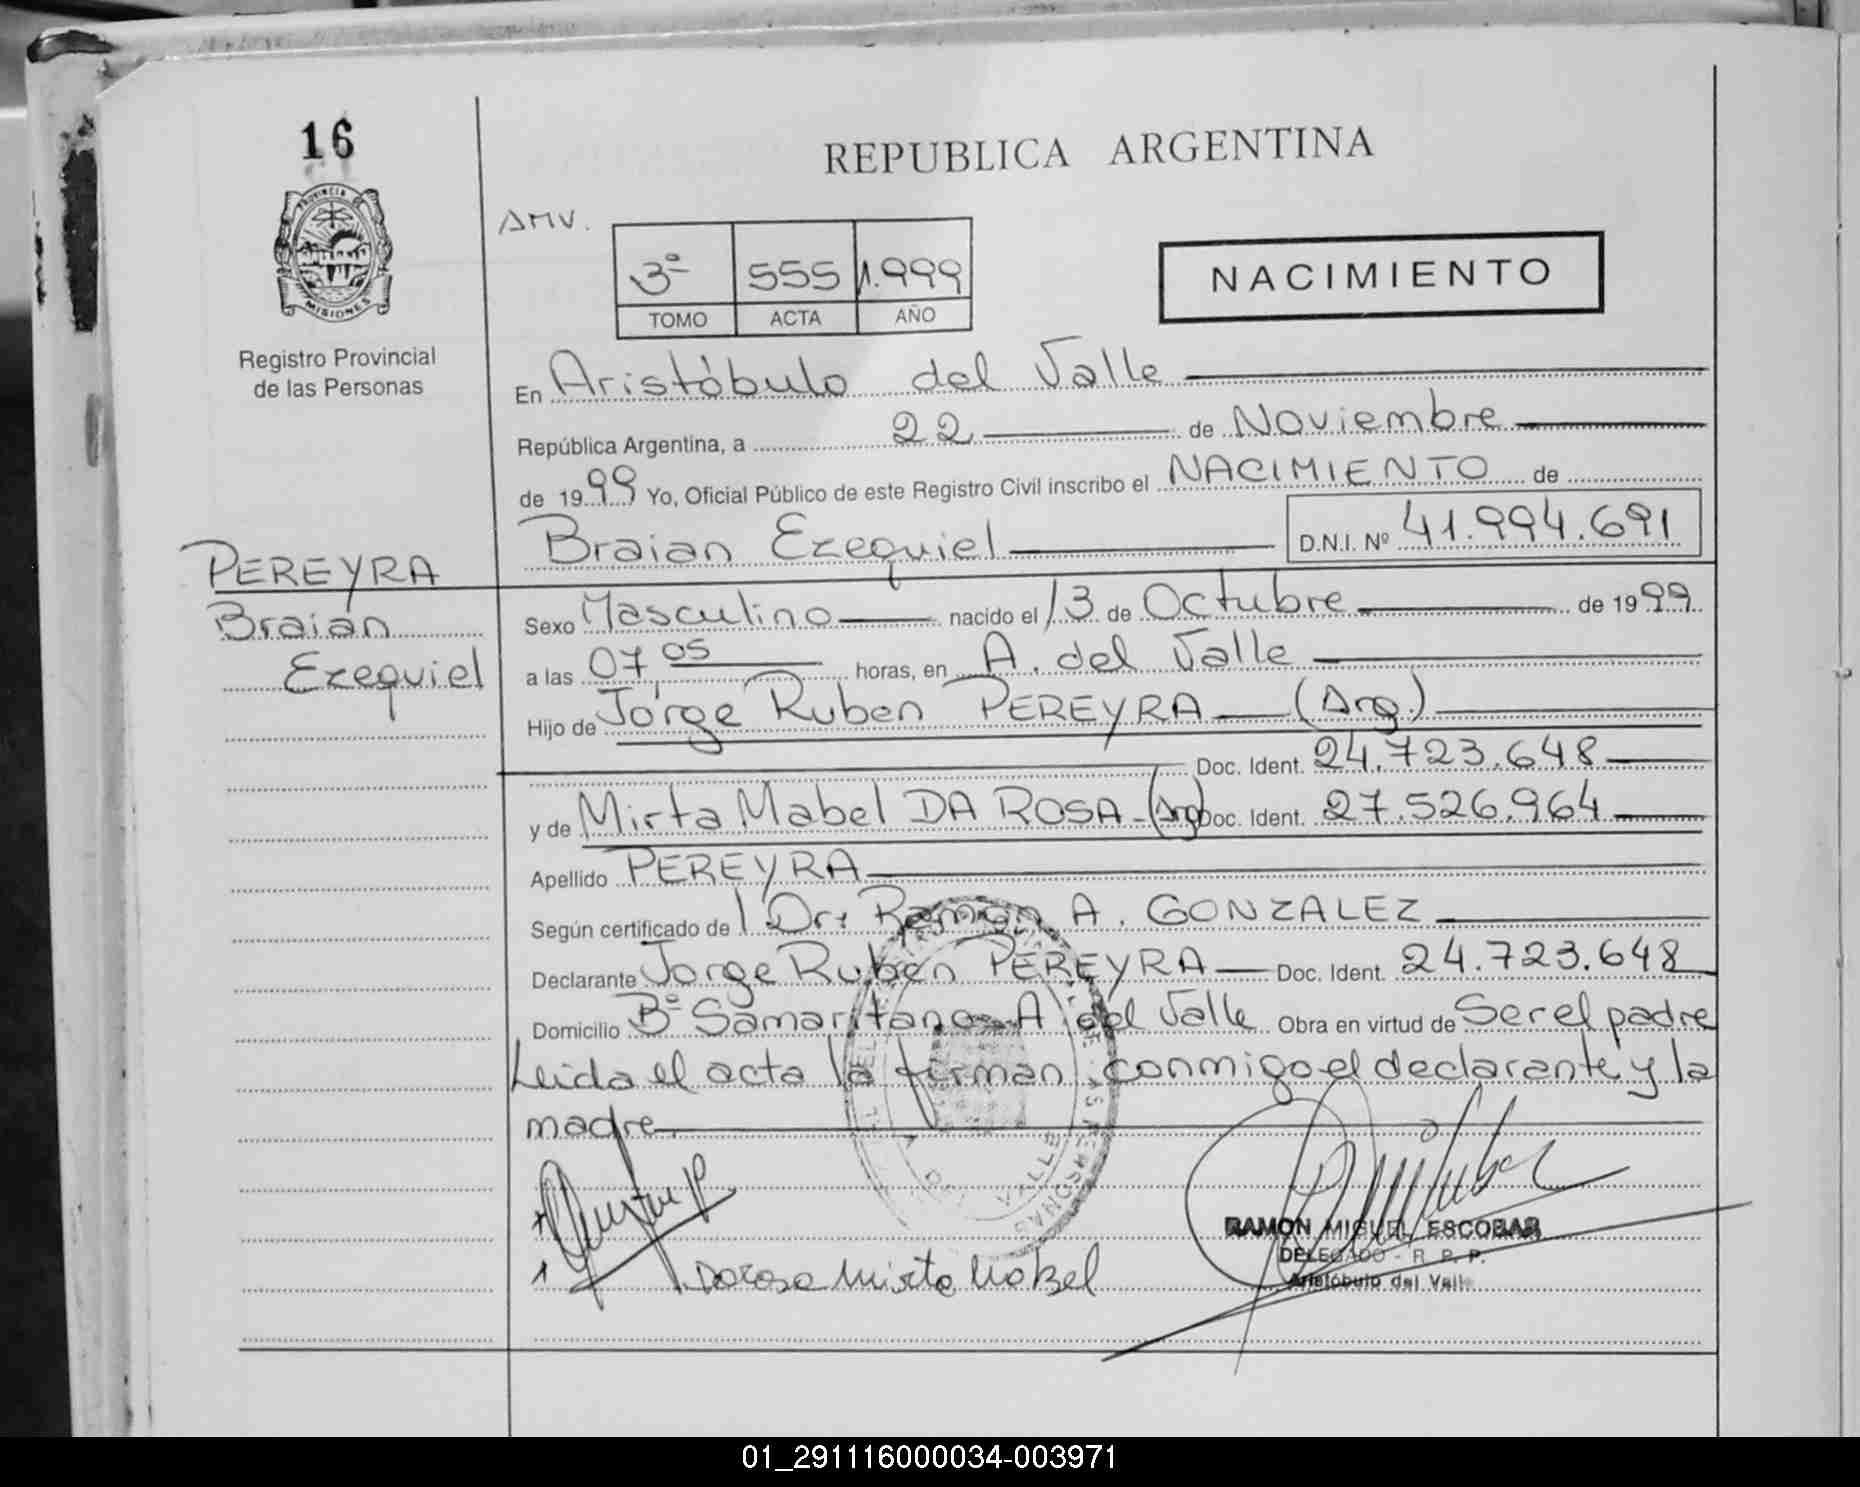 16
PROVINCIA DE
MISIONES
Registro Provincial
de las Personas
PEREYRA
Braian
Ezequiel
REPUBLICA ARGENTINA
AMV.
3º 555 1.999
TOMO ACTA AÑO
NACIMIENTO
En Aristóbulo del Valle
República Argentina, a 22 de Noviembre
de 1999 Yo, Oficial Público de este Registro Civil inscribo el NACIMIENTO de
Braian Ezequiel D.N.I. Nº 41.994.691
Sexo Masculino nacido el 13 de Octubre de 1999
a las 07,05 horas, en A. del Valle
Hijo de Jorge Ruben PEREYRA (Arg.)
Doc. Ident. 24.723.648
y de Mirta Mabel DA ROSA - (Arg) Doc. Ident. 27.526.964
Apellido PEREYRA
Según certificado de l Dr: Ramon A. GONZALEZ
Declarante Jorge Ruben PEREYRA Doc. Ident. 24.723.648
Domicilio Bº Samaritano - A. del Valle Obra en virtud de Ser el padre
Leida el acta la firman conmigo el declarante y la
madre.
A. DEL VALLE
Darosa Mirta Mabel
RAMON MIGUEL ESCOBAR
DELEGADO - R. P. P.
Aristóbulo del Valle
01_291116000034-003971